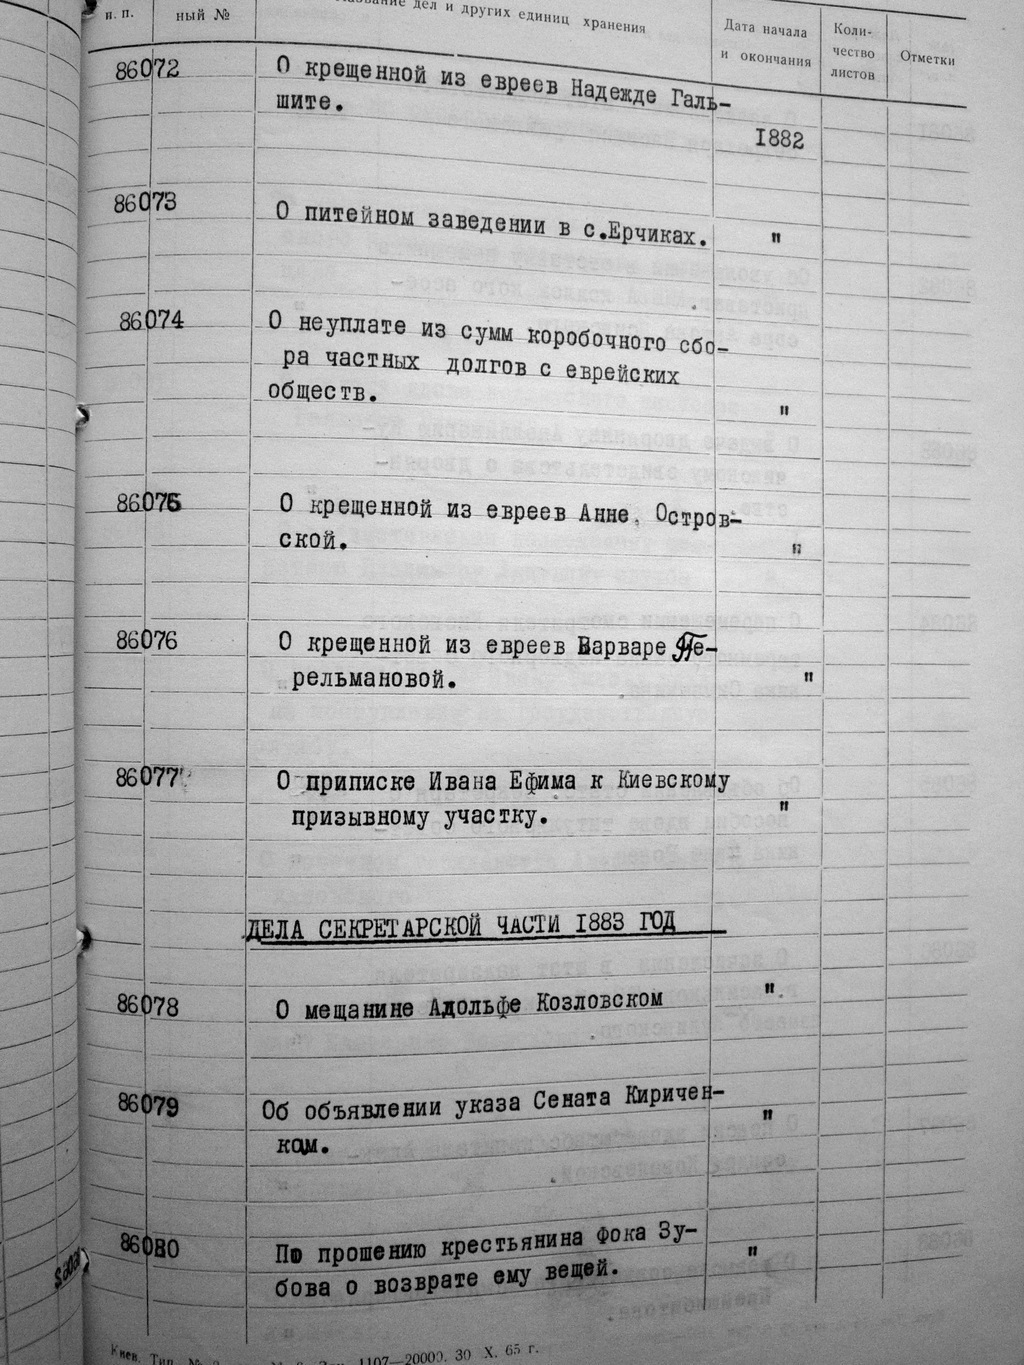 н. п.
ный №
дел и других единиц хранения
Дата начала
и окончания
Коли-
чество
листов
Отметки
86072
О крещенной из евреев Надежде Галь-
шите.
1882
86073
О питейном заведении в с.Ерчиках.
"
86074
О неуплате из сумм коробочного сбо-
ра частных долгов с еврейских
обществ.
"
86075
О крещенной из евреев Анне, Остров-
ской.
"
86076
О крещенной из евреев Варваре Пе-
рельмановой.
"
86077
О приписке Ивана Ефима к Киевскому
призывному участку.
"
ДЕЛА СЕКРЕТАРСКОЙ ЧАСТИ 1883 ГОД
86078
О мещанине Адольфе Козловском
"
86079
Об объявлении указа Сената Киричен-
кам.
"
86080
По прошению крестьянина Фока Зу-
бова о возврате ему вещей.
"
Киев. Тип. 1107—20000. 30 X. 65 г.